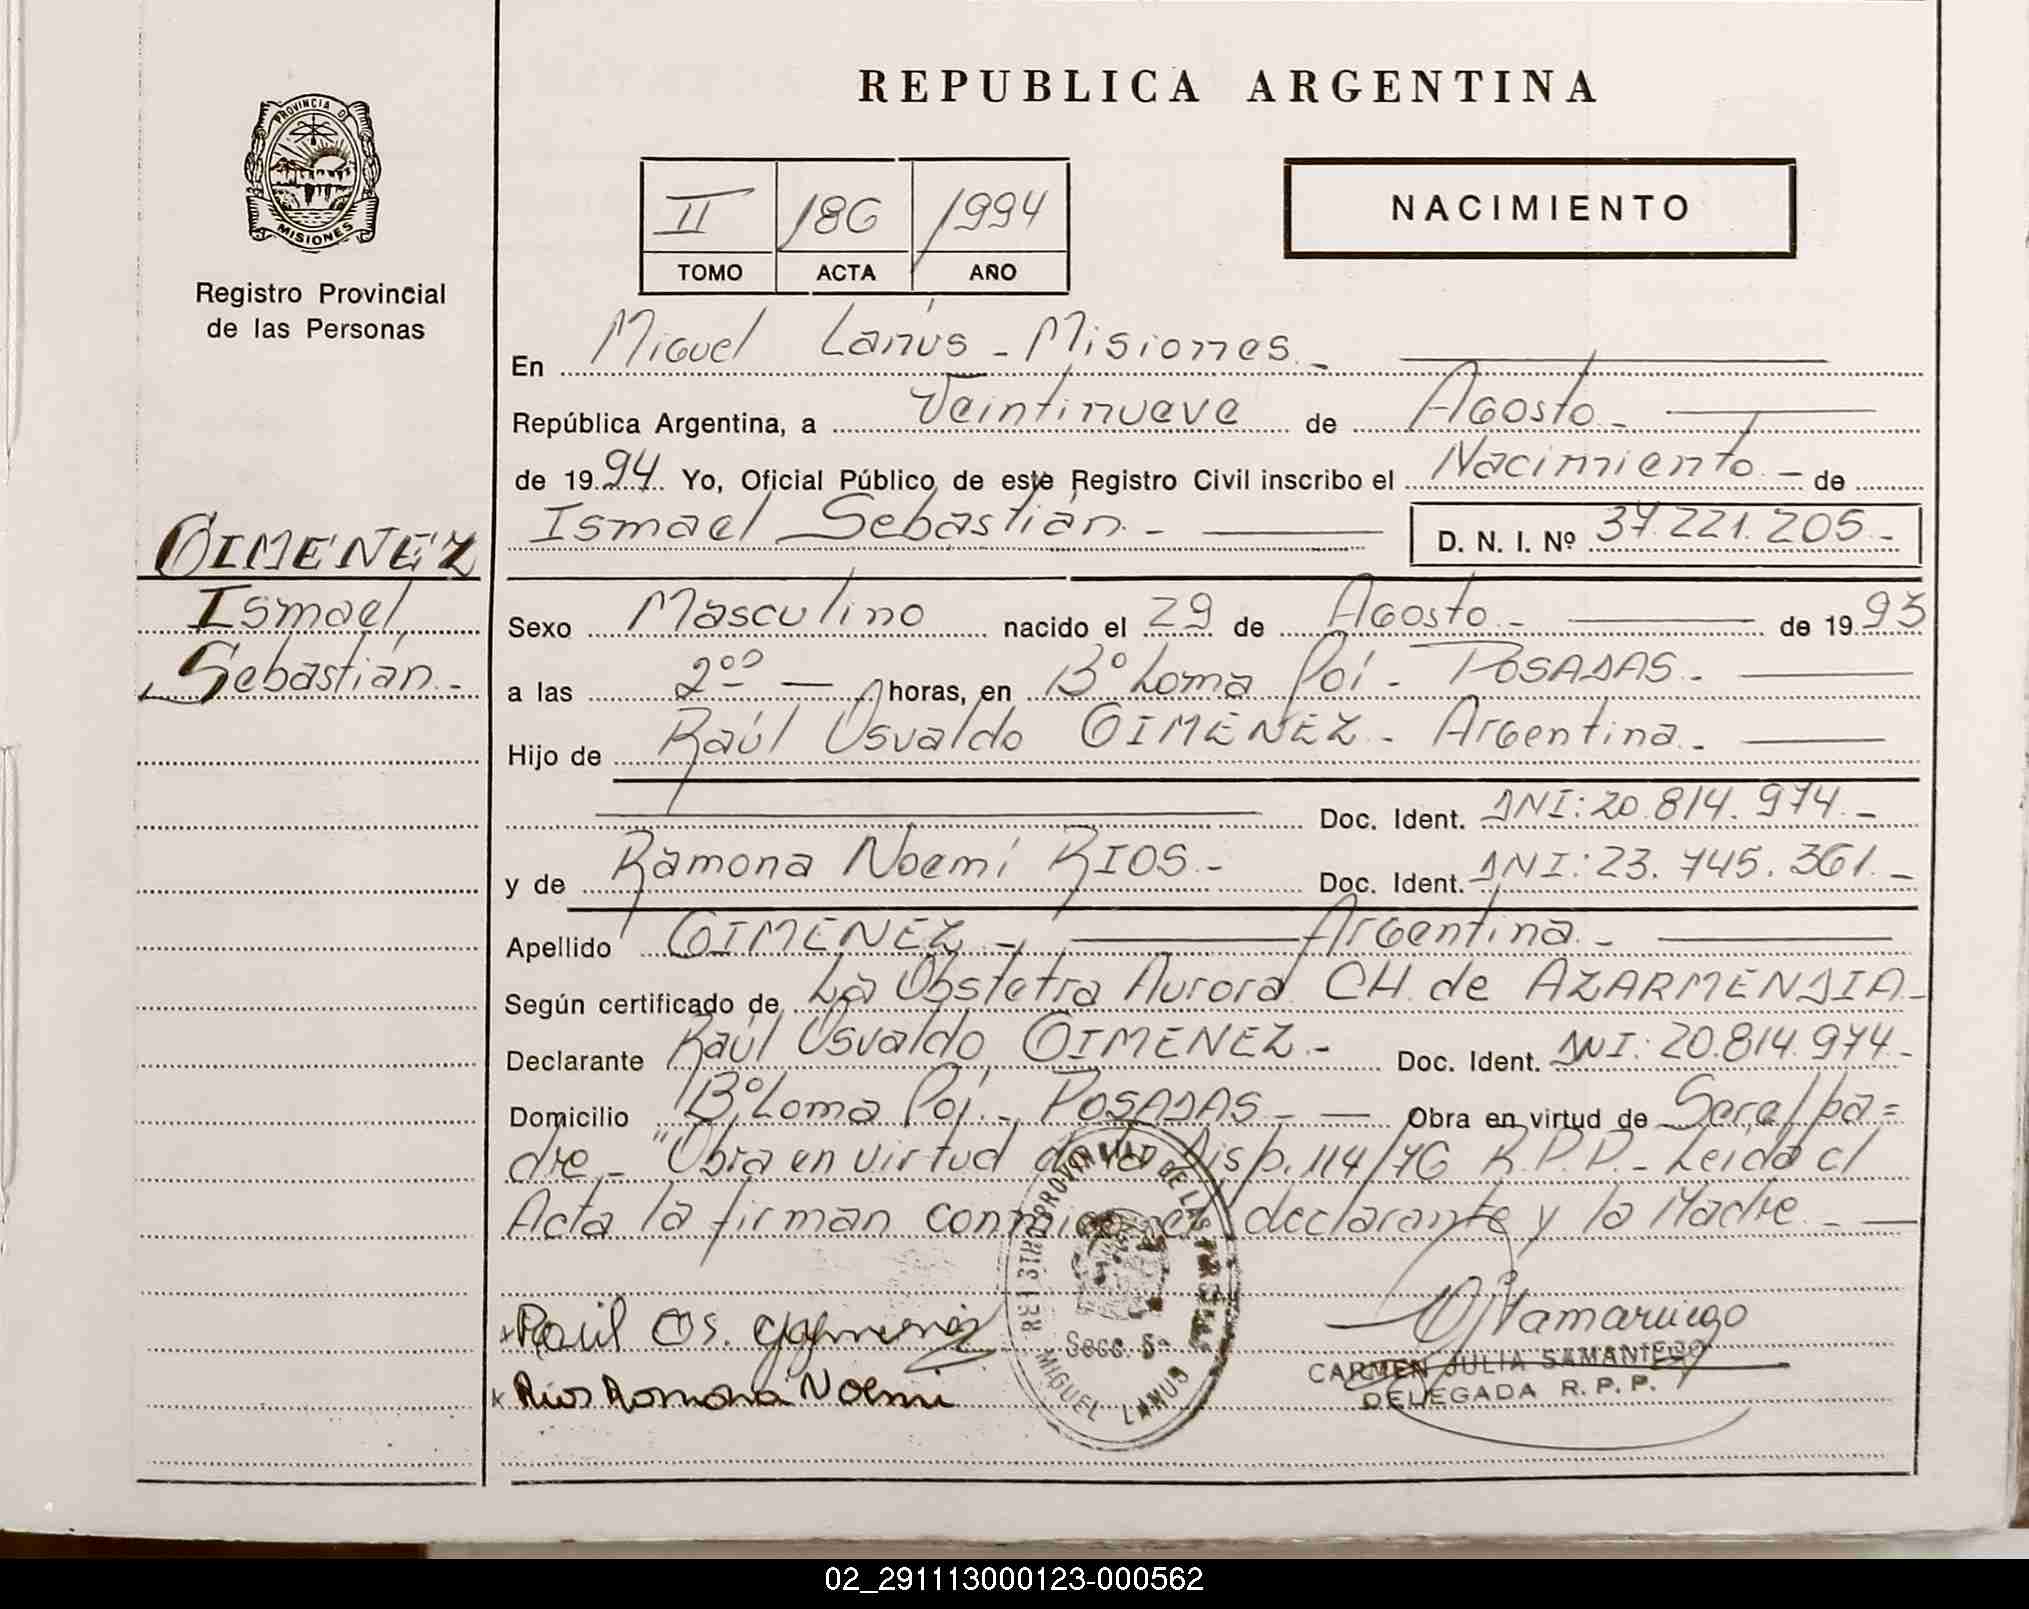 REPUBLICA ARGENTINA
PROVINCIA DE
MISIONES
Registro Provincial
de las Personas
II 186 1994
TOMO ACTA AÑO
NACIMIENTO
En Miguel Lanús - Misiones. -
República Argentina, a Veintinueve de Agosto. -
de 1994 Yo, Oficial Público de este Registro Civil inscribo el Nacimiento. - de
Ismael Sebastián. - D. N. I. Nº 37.221.205. -
GIMENEZ
Ismael
Sebastián. -
Sexo Masculino nacido el 29 de Agosto. - de 1993
a las 2⁰⁰ — horas, en Bº Loma Poí - POSADAS. -
Hijo de Raúl Osvaldo GIMENEZ - Argentina. -
Doc. Ident. DNI: 20.814.974. -
y de Ramona Noemí RIOS. - Doc. Ident. DNI: 23.745.361. -
Apellido GIMENEZ. - Argentina. -
Según certificado de La Obstetra Aurora CH. de AZARMENDIA -
Declarante Raúl Osvaldo GIMENEZ. - Doc. Ident. DNI: 20.814.974. -
Domicilio Bº Loma Poí. - POSADAS. - — Obra en virtud de Ser el pa=
dre. - "Obra en virtud de la Disp. 114/76 R.P.P. - Leída el
Acta la firman conmigo el declarante y la Madre. -
x Raúl Os.
x Rios Ramona Noemi
REGISTRO PROVINCIAL DE LAS PERSONAS
Secc. 5ª
MIGUEL LANUS
CARMEN JULIA SAMANIEGO
DELEGADA R. P. P.
02_291113000123-000562